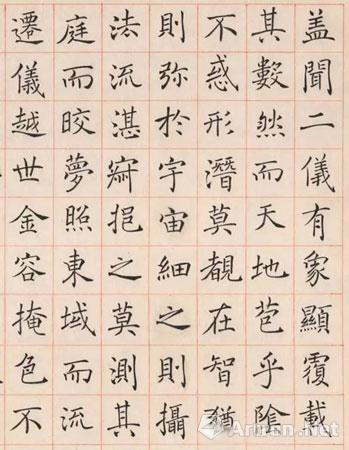 盖聞二儀有象顯覆載
其數然而天地苞乎陰
不惑形潛莫覩在智猶
則弥於宇宙細之則攝
法流湛寂挹之莫測其
庭而皎夢照東域而流
遷儀越世金容掩色不
Artron.Net